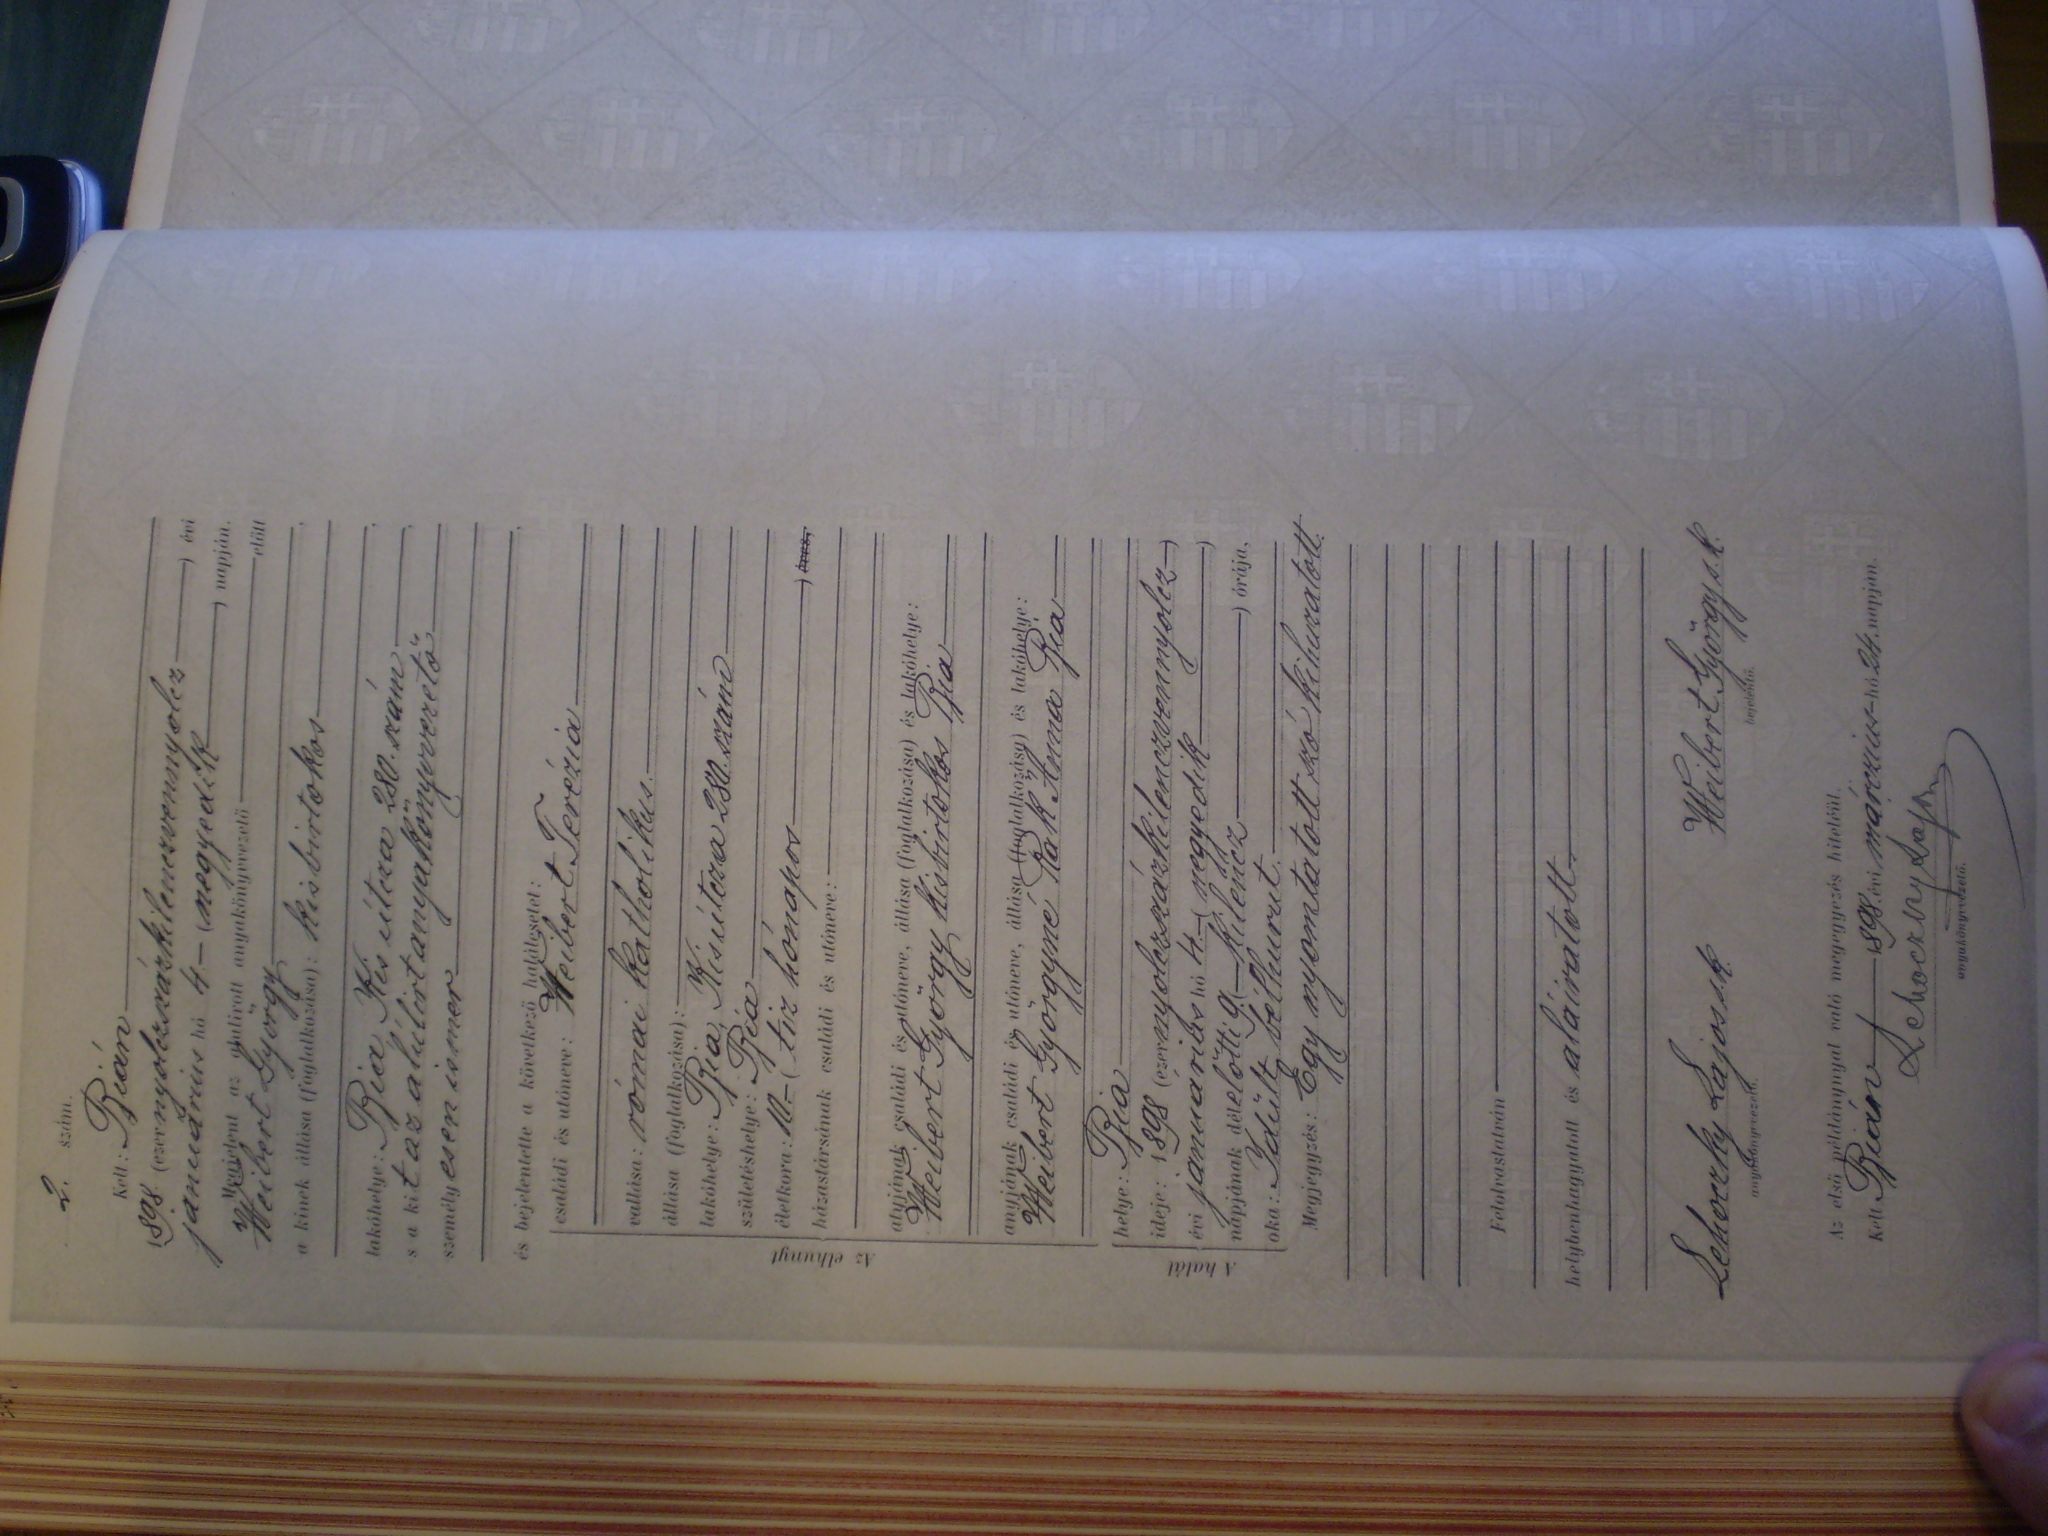 2. szám.
Kelt: Bián
1898. (ezernyolczszázkilenczvennyolcz) évi
január­ius hó 4. (negyedik) napján.
Megjelent az alulirott anyakönyvvezető előtt
Weibert György
a kinek állása (foglalkozása): kisbirtokos,
lakóhelye: Bia Kis utcza 280. szám,
s a kit az alulirt anyakönyvvezető,
személyesen ismer
és bejelentette a következő halálesetet:
Az elhunyt
családi és utóneve: Weibert Terézia
vallása: római katholikus.
állása (foglalkozása):
lakóhelye: Bia, Kis utcza 280. szám
születéshelye: Bia
életkora: 10. (tiz hónapos) éves,
házastársának családi és utóneve:
atyjának családi és utóneve, állása (foglalkozása) és lakóhelye:
Weibert György kisbirtokos Bia
anyjának családi és utóneve, állása (foglalkozása) és lakóhelye:
Weibert Györgyné Pák Anna Bia
A halál
helye: Bia
ideje: 1898 (ezernyolczszázkilenczvennyolcz)
évi januárius hó 4. (negyedik)
napjának délelőtti 9. (kilencz) órája,
oka: Idült bélhurut.
Megjegyzés: Egy nyomtatott szó kihuzatott.
Felolvastatván
helybenhagyatott és aláiratott.
Lehoczky Lajos s.k. Weibert György s.k.
anyakönyvvezető. bejelentő.
Az első példánynyal való megegyezés hiteléül.
Kelt Bián 1898. évi márczius hó 24. napján.
Lehoczky Lajos
anyakönyvvezető.